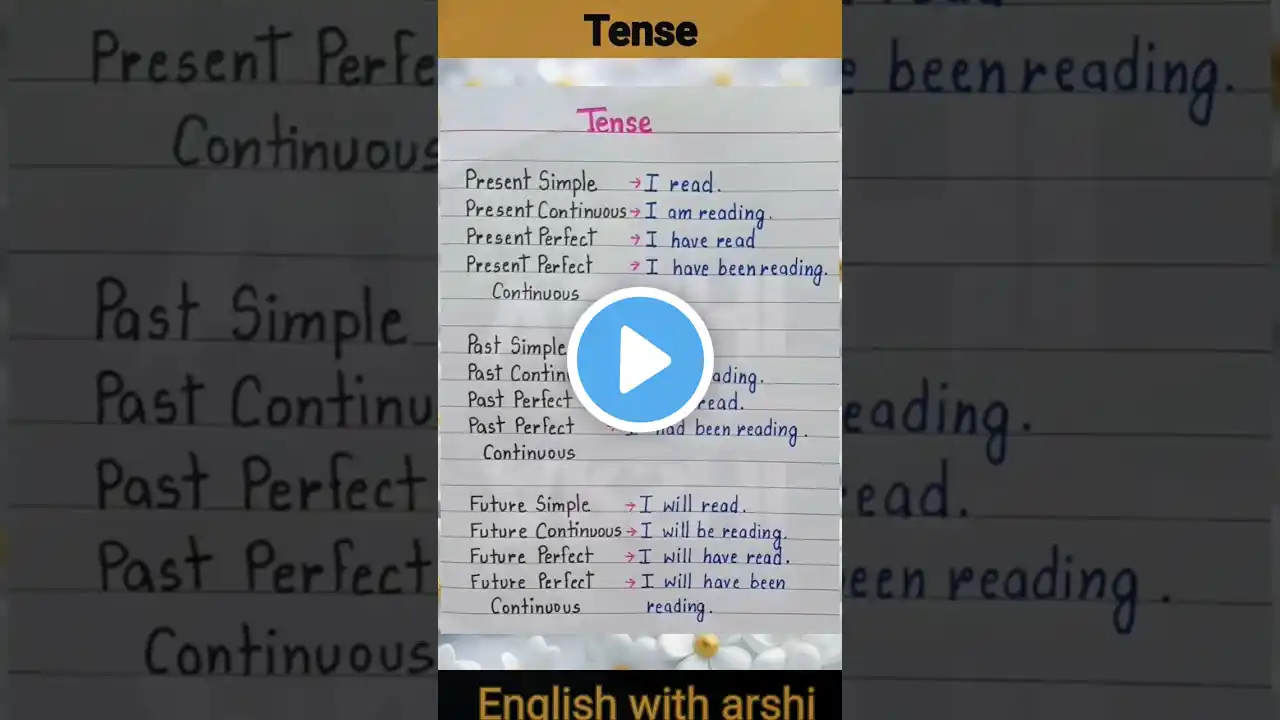 Tense
Tense
Present Simple → I read.
Present Continuous → I am reading.
Present Perfect → I have read
Present Perfect → I have been reading.
Continuous
Past Simple
Past Contin ading.
Past Perfect read.
Past Perfect → I had been reading.
Continuous
Future Simple → I will read.
Future Continuous → I will be reading.
Future Perfect → I will have read.
Future Perfect → I will have been
Continuous reading.
English with arshi
Present Perfe been reading.
Continuous
Past Simple
Past Continu eading.
Past Perfect ead.
Past Perfect een reading.
Continuous